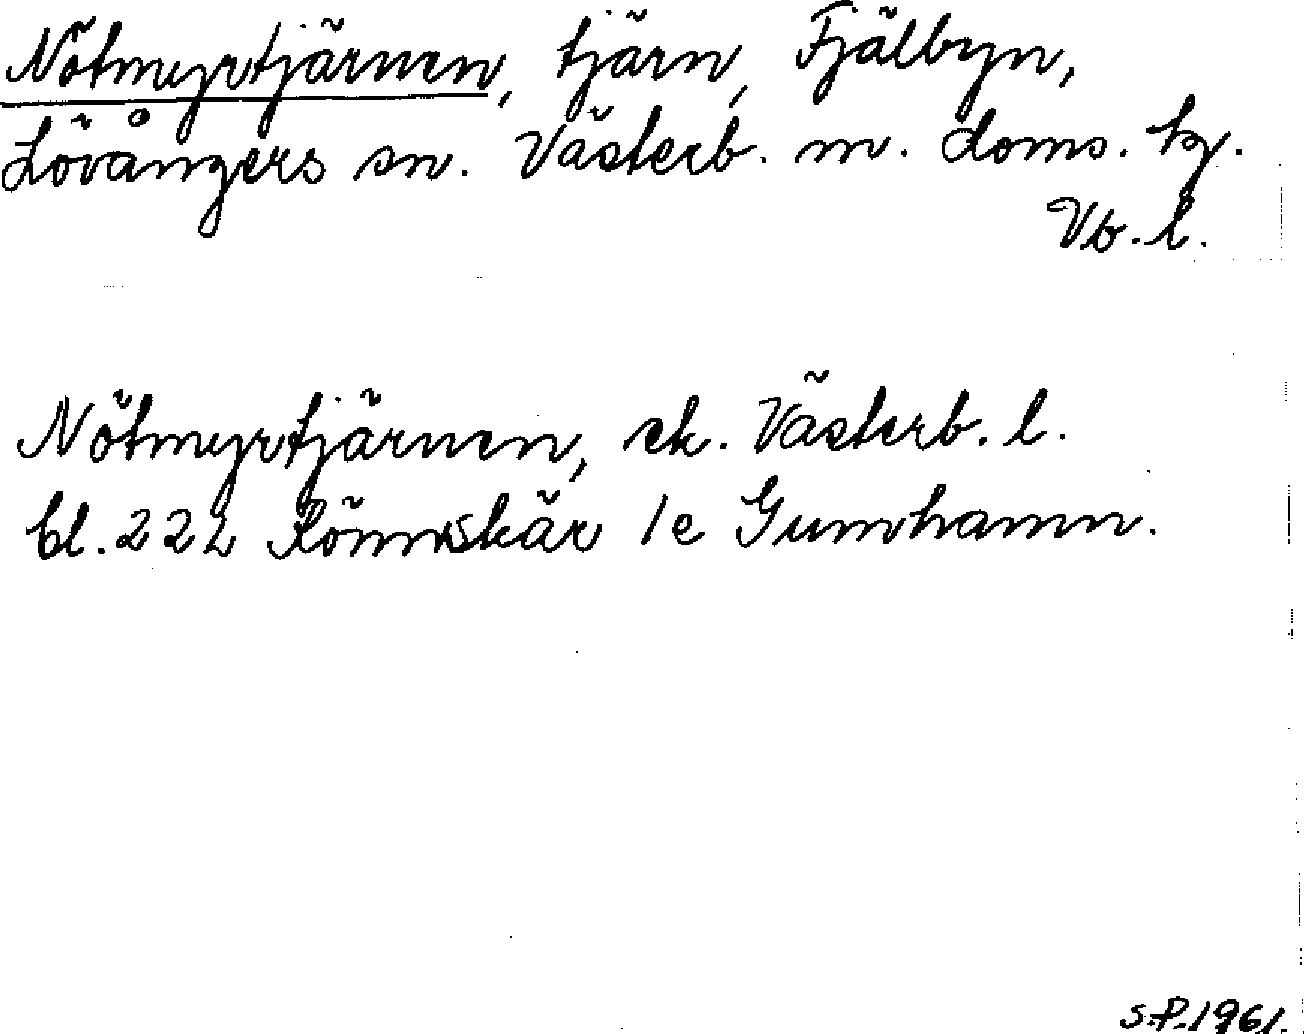 Nötmyrtjärnen, tjärn, Fjälbyn,
Lövångers sn. Västerb. n. doms. tg.
Vb. l.
Nötmyrtjärnen, ek. Västerb. l.
bl. 222 Rönnskär 1e Gumhamn.
S.P. 1961.